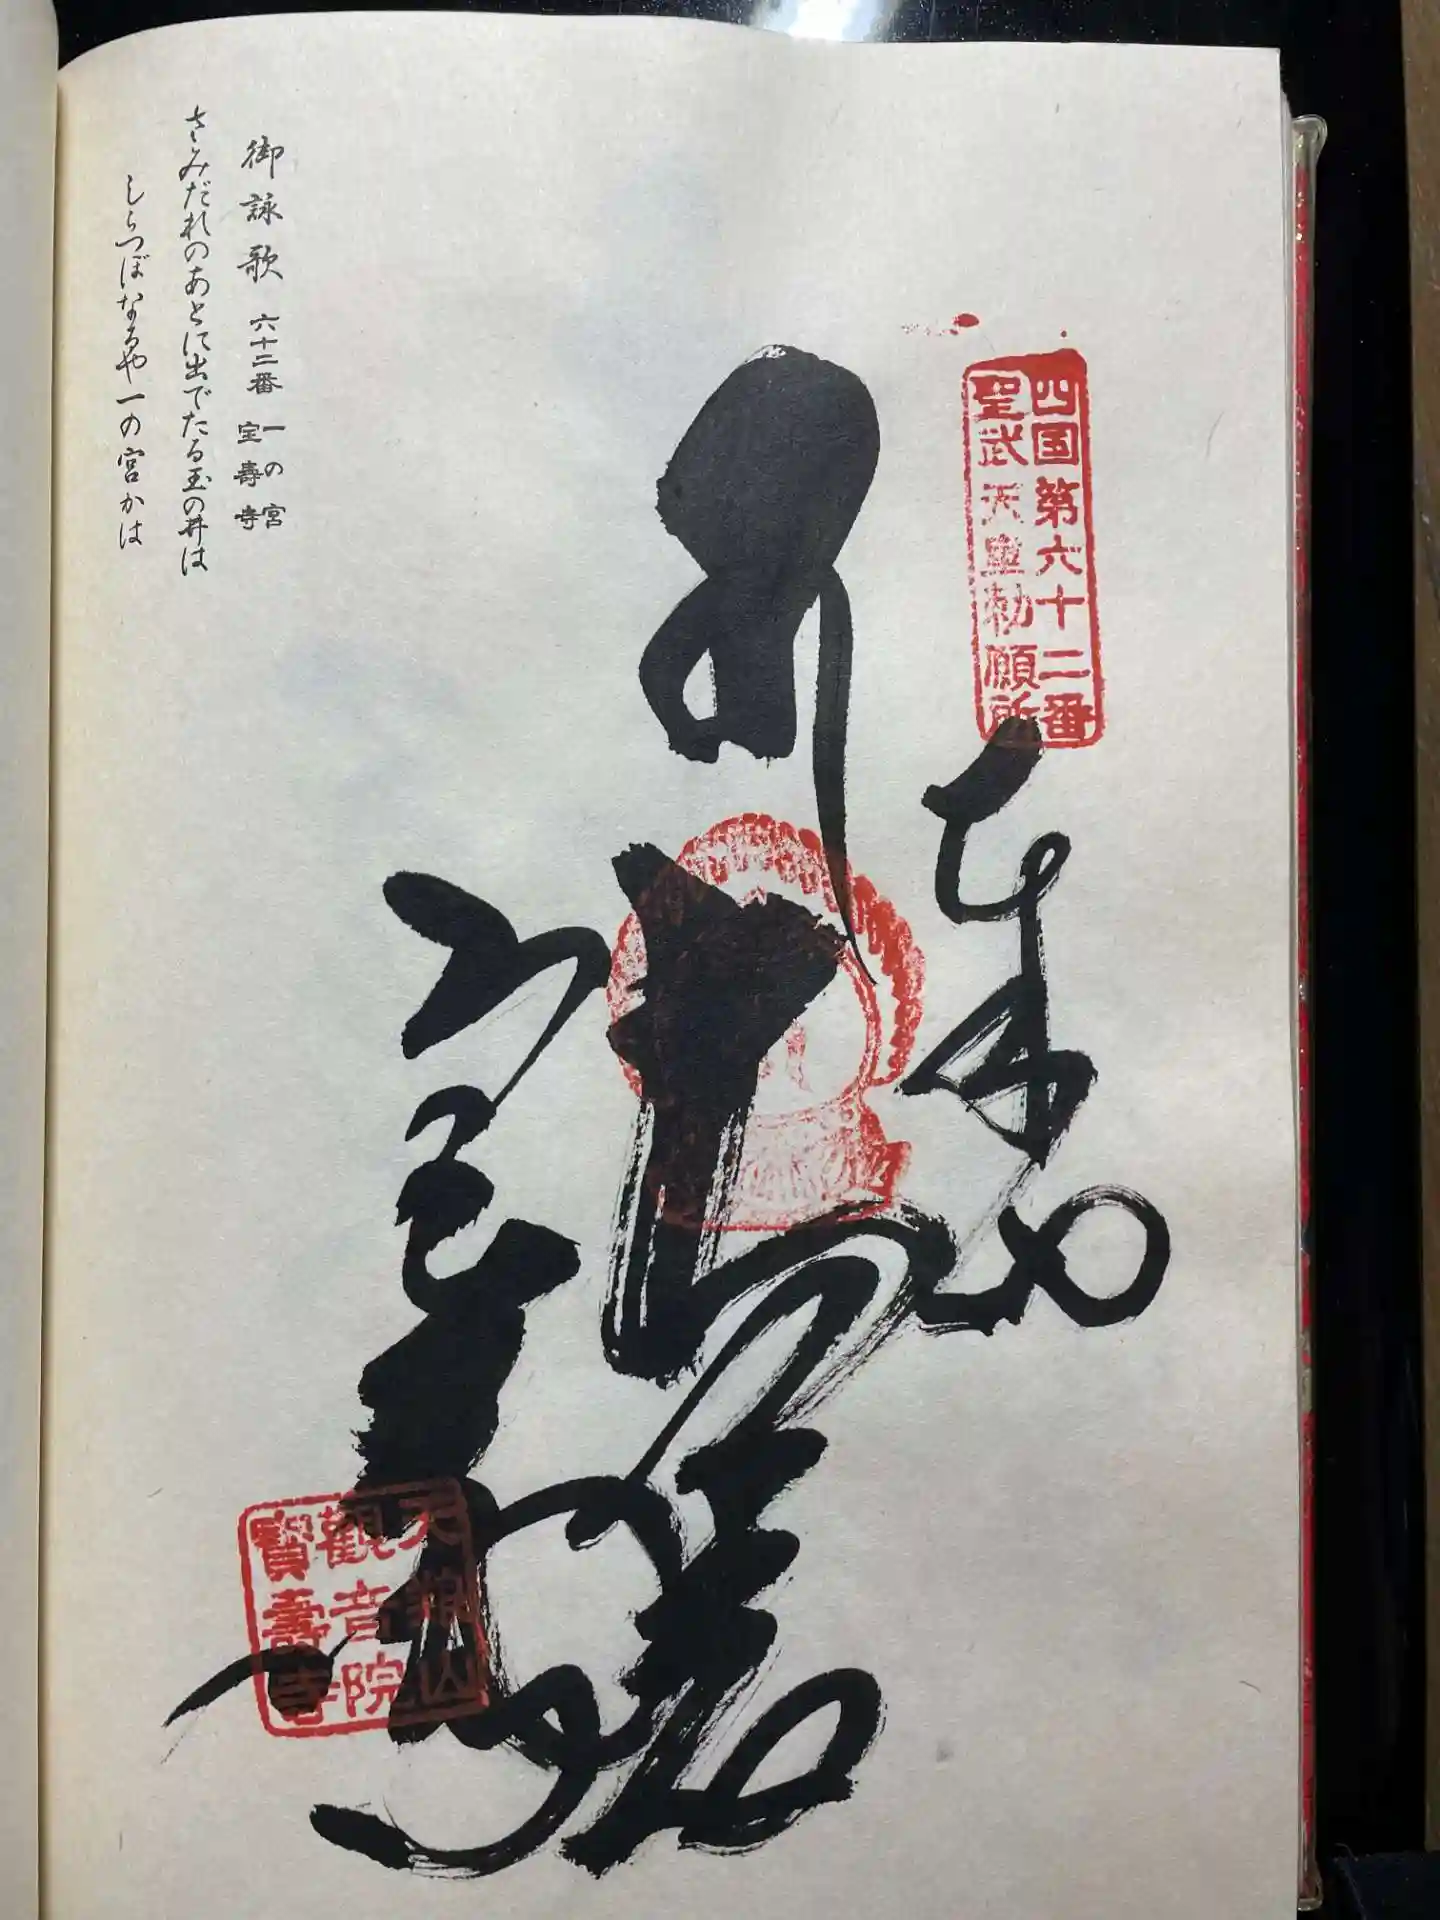 四国第六十二番
聖武天皇勅願所
奉
宝壽寺
天養山
觀音院
寳壽寺
御詠歌 六十二番 一の宮 宝壽寺
さみだれのあとに出でたる玉の井は
しらつぼなるや一の宮かは